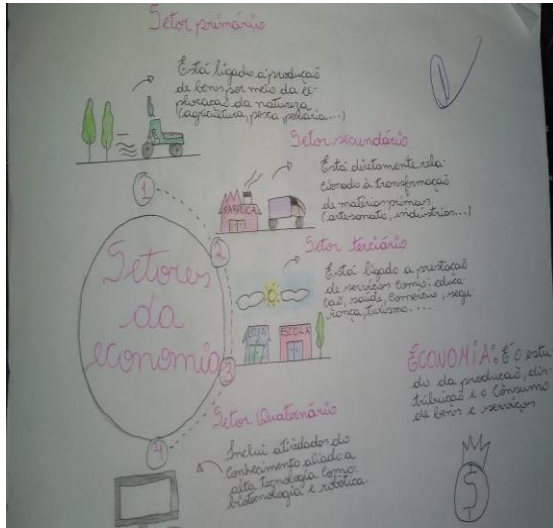 Setor primário
Está ligado a produção
de bens por meio da ex-
ploração da natureza
(agricultura, pesca, pecuária...)
Setor secundário
Está diretamente rela-
cionado à transformação
de matérias primas.
(artesanato, indústrias...)
FÁBRICA
1
2
3
4
Setores
da
economia
Setor terciário
Está ligado a prestação
de serviços como: educa-
ção, saúde, comércio, segu
rança, turismo....
LOJA
ESCOLA
ECONOMIA: É o estu
do da produção, dis-
tribuição e o consumo
de bens e serviços
$
Setor Quaternário
Inclui atividades do
conhecimento aliado a
alta tecnologia como:
biotecnologia e robótica.